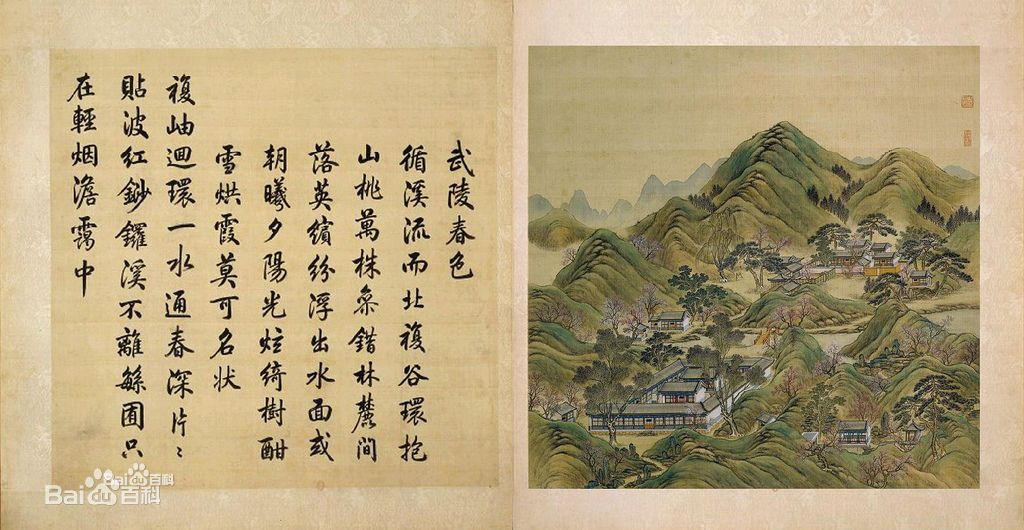 武陵春色
循溪流而北複谷環抱
山桃萬株叅錯林麓間
落英繽紛浮出水面或
朝曦夕陽光炫綺樹酣
雪烘霞莫可名状
複岫迴環一水通春深片〻
貼波紅鈔鑼溪不離繇囿只
在輕烟澹靄中
Bai百科
百科